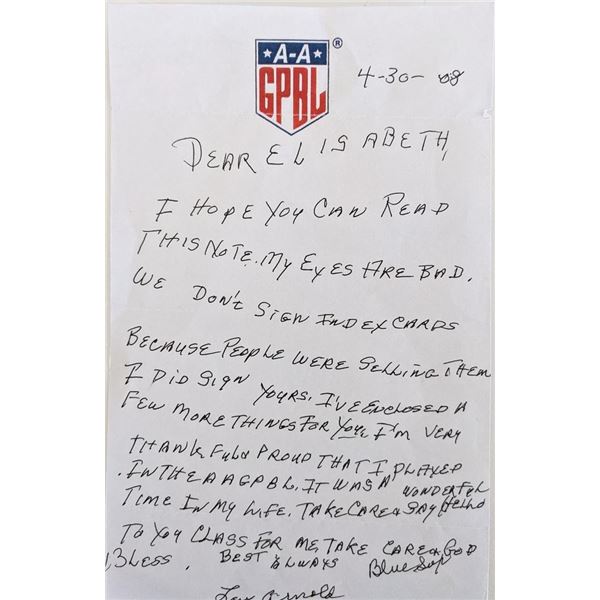 A-A
GPBL
®
4-30-08
DEAR ELISABETH,
I HOPE YOU CAN READ
THIS NOTE. MY EYES ARE BAD.
WE DON'T SIGN INDEX CARDS
BECAUSE PEOPLE WERE SELLING THEM
I DID SIGN YOURS, I'VE ENCLOSED A
FEW MORE THINGS FOR YOU, I'M VERY
THANKFUL & PROUD THAT I PLAYED
IN THE AAGPBL. IT WAS A WONDERFUL
TIME IN MY LIFE. TAKE CARE & SAY HELLO
TO YOU CLASS FOR ME, TAKE CARE & GOD
BLESS. BEST ALWAYS
Arnold